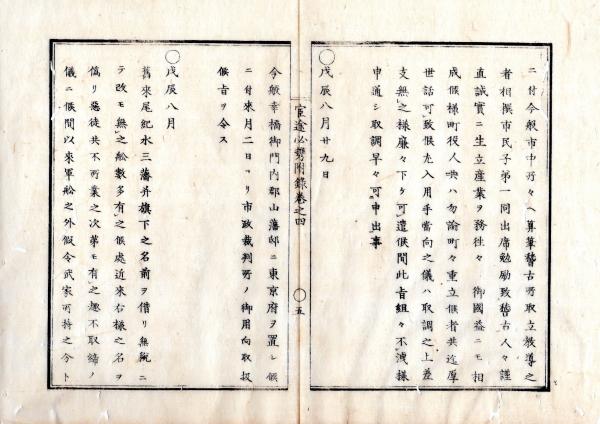 ニ付今般市中所々へ算筆稽古所取立教導之
者相撰市民子弟一同出席勉励致稽古人々謹
直誠實ニ生立産業ヲ務往々 御國益ニモ相
成候様町役人共ハ勿論町々重立候者共迄厚
世話可致候尤入用手當向之儀ハ取調之上差
支無之様廉々下ケ可遣候間此旨組々不洩様
申通シ取調早々可申出事
○戊辰八月廿九日
宦途必携附録巻之四
○五
今般幸橋御門内郡山藩邸ニ東京府ヲ置レ候
ニ付来月二日ヨリ市政裁判所ノ御用向取扱
候旨ヲ令ス
○戊辰八月
舊來尾紀水三藩并旗下之名前ヲ借リ無院ニ
テ改モ無之舩數多有之候處近来右様之名ヲ
偽リ惡徒共不所業之次第モ有之趣不取締ノ
儀ニ候間以來軍舩之外假令武家所持之分ト